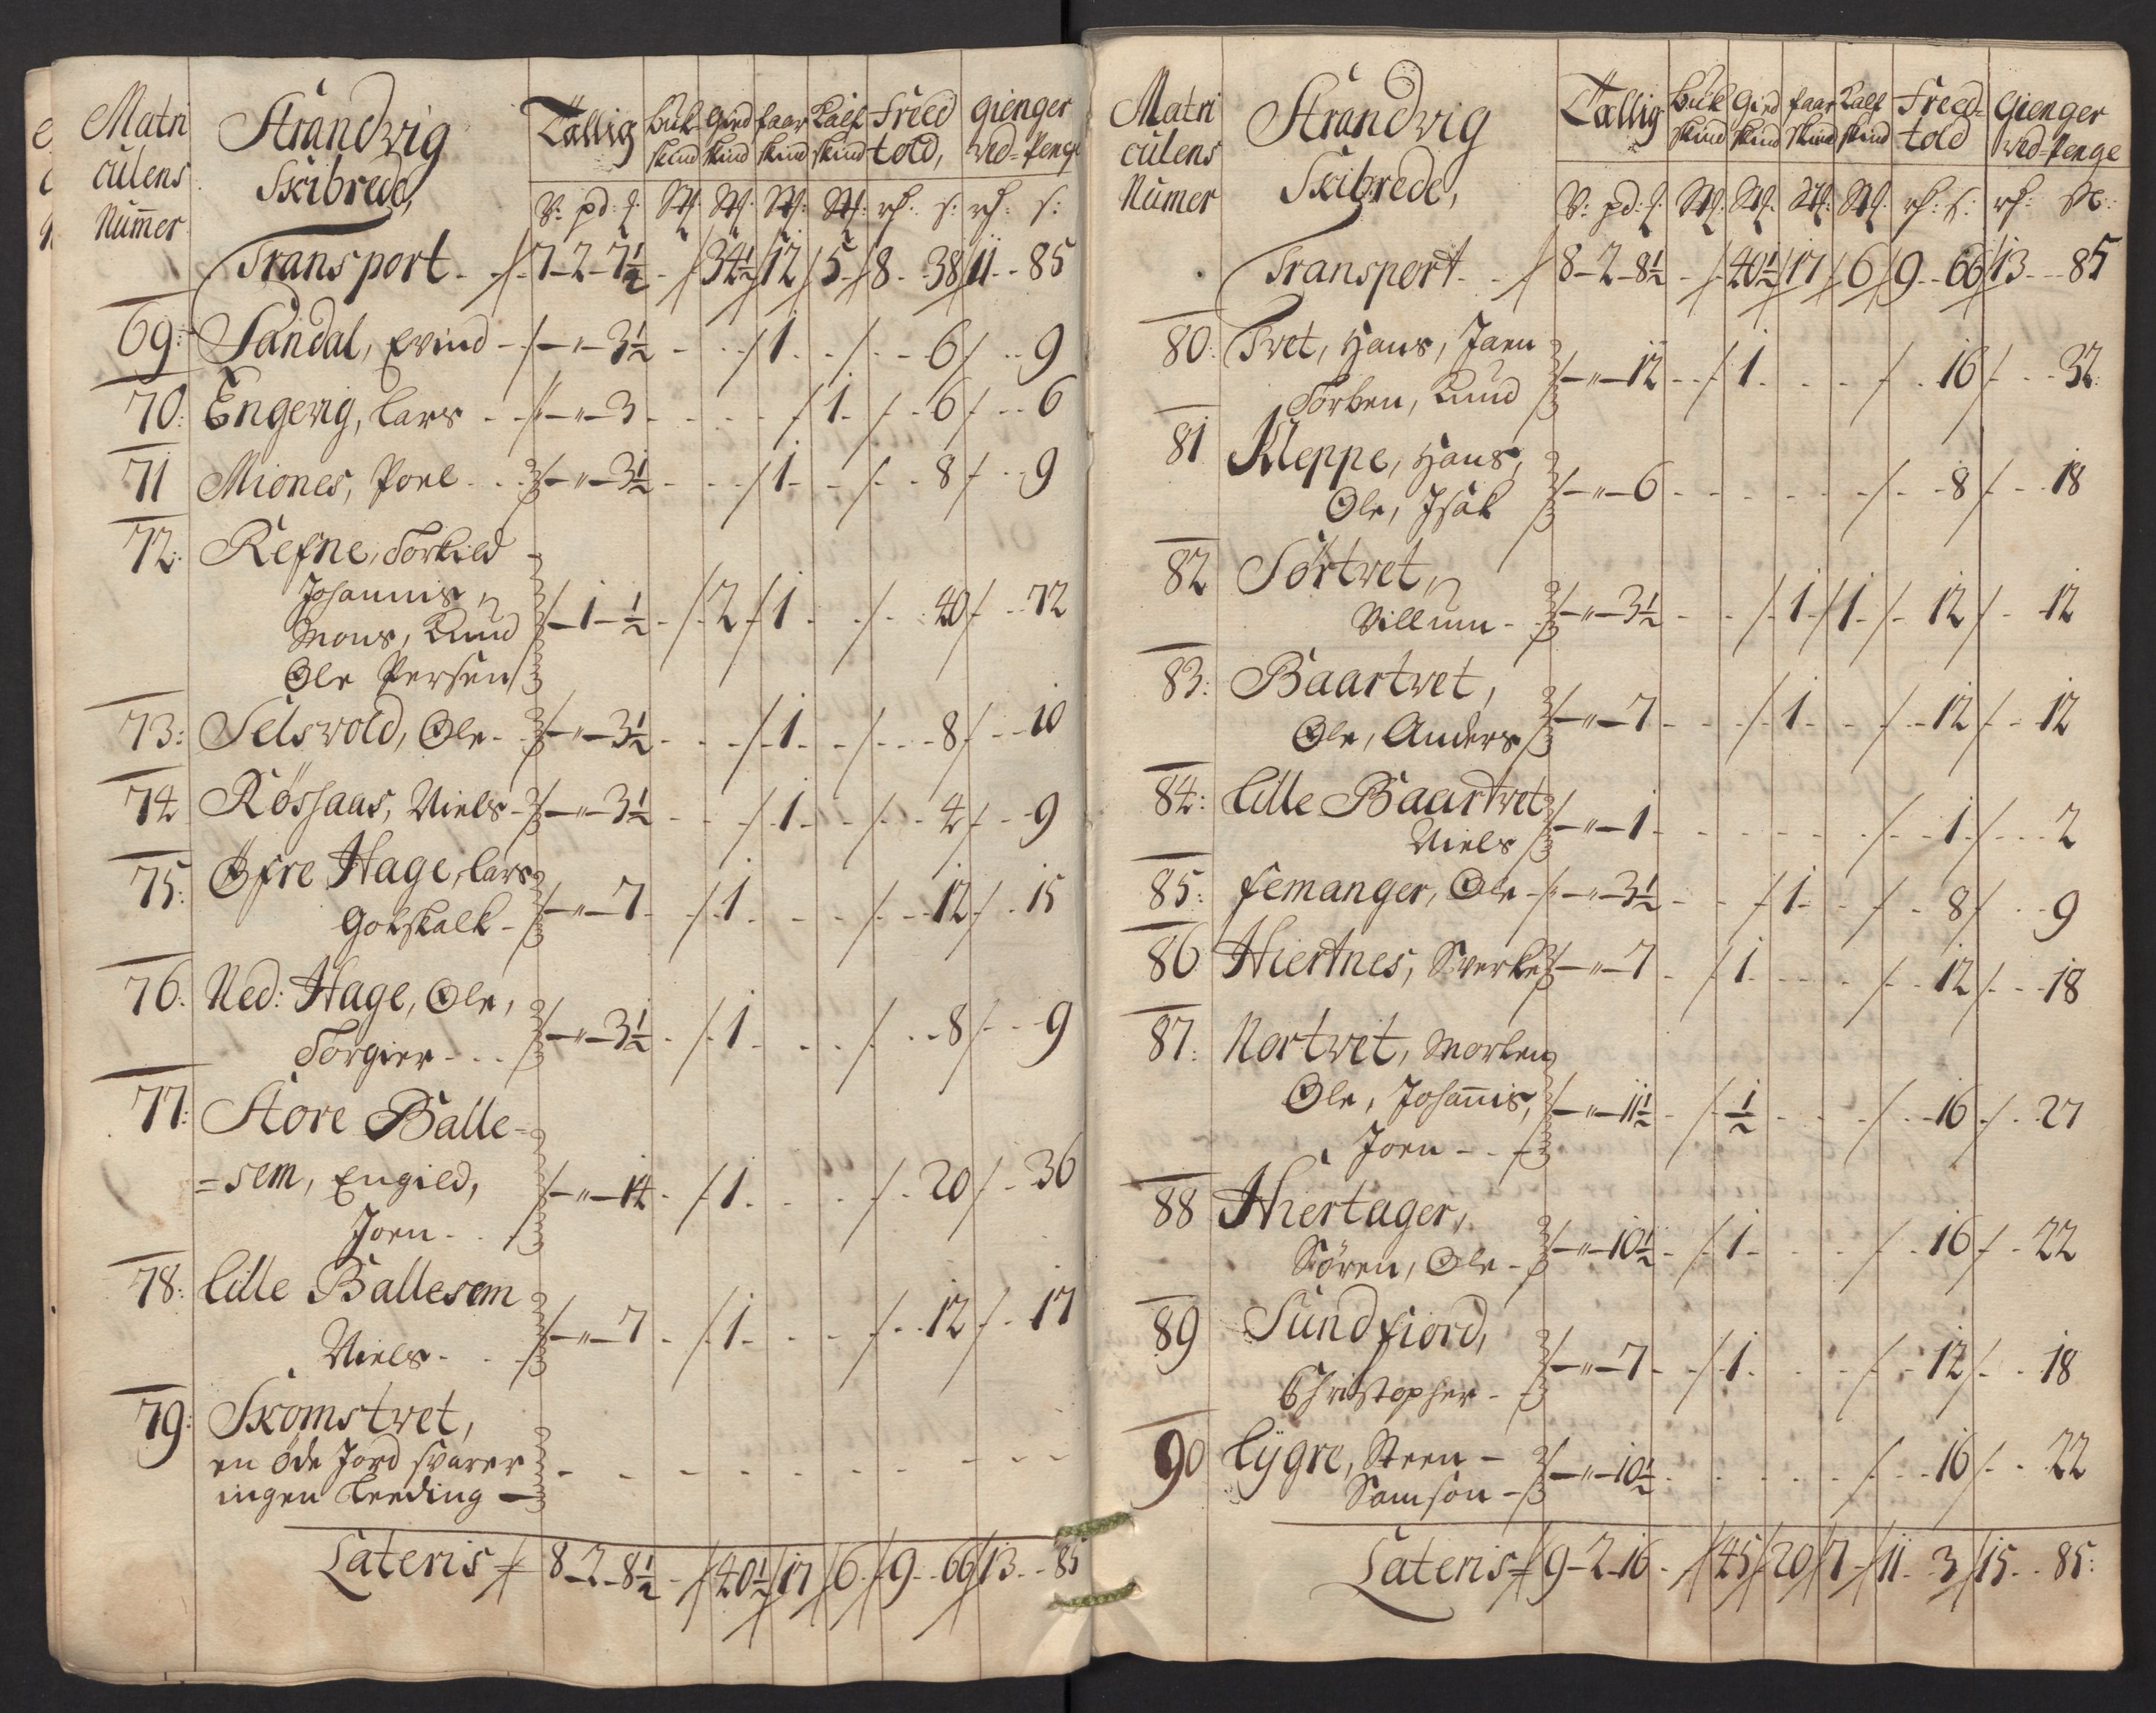 Matri Strandwig Tallig Buk Gied faar Kalf Freed gienger
culens Skibrede, skind skind skind skind told, ved=Penge
Numer V: pd: l: Stk: Stk: Stk: Stk: rh: s: rh: s:
Transport - 7-2-7½ - 34½ 12 5 8 - 38 11 - 85
69: Sandal, Evind - " - 3½ - 1 - 6 - 9
70: Engevig, Lars - " - 3 - 1 - 6 - 6
71 Miones, Poel - " - 3½ - 1 - 8 - 9
72: Refne, Torkild
Johannis,
Mons, Knud - 1 - ½ - 2 1 - 40 - 72
Ole Persen
73: Selsvold, Ole - " - 3½ - 1 - 8 - 10
74 Rössaas, Niels - " - 3½ - 1 - 4 - 9
75: Øfre Hage, Lars
Gotskalk - " - 7 - 1 - 12 - 15
76: Ned: Hage, Ole,
Torgier - " - 3½ - 1 - 8 - 9
77: Store Balle=
=sem, Engild, - " - 14 - 1 - 20 - 36
Joen
78: Lille Ballesem
Niels - " - 7 - 1 - 12 - 17
79: Skomstvet,
en öde Jord svarer
ingen Leeding
Lateris 8-2-8½ - 40½ 17 6 9 - 66 13 - 85
Matri Strandwig Tallig Buk Gied faar Kalf Freed= Gienger
culens Skibrede, skind skind skind skind told ved=Penge
Numer V: pd: l: Stk: Stk: Stk: Stk: rh: s: rh: St:
Transport - 8-2-8½ - 40½ 17 6 9 - 66 13 - 85
80: Tvet, Hans, Joen
Torben, Knud - " - 12 - 1 - 16 - 32:
81 Kleppe, Hans,
Ole, Isak - " - 6 - 8 - 18
82 Sörtvet,
Villum - " - 3½ - 1 1 - 12 - 12
83: Baartvet,
Ole, Anders - " - 7 - 1 - 12 - 12
84: Lille Baartvet
Niels - " - 1 - 1 - 2
85: femanger, Ole - " - 3½ - 1 - 8 - 9
86 Hiertnes, Sverke - " - 7 - 1 - 12 - 18
87: Nortvet, Morten
Ole, Johanis, - " - 11½ - ½ - 16 - 27
Joen
88 Hiertager,
Sören, Ole - " - 10½ - 1 - 16 - 22
89 Sundfiord,
Christopher - " - 7 - 1 - 12 - 18
90 Lÿgre, Steen
Samson - " - 10½ - 16 - 22
Lateris 9-2-16 - 45 20 7 11 - 3 15 - 85: